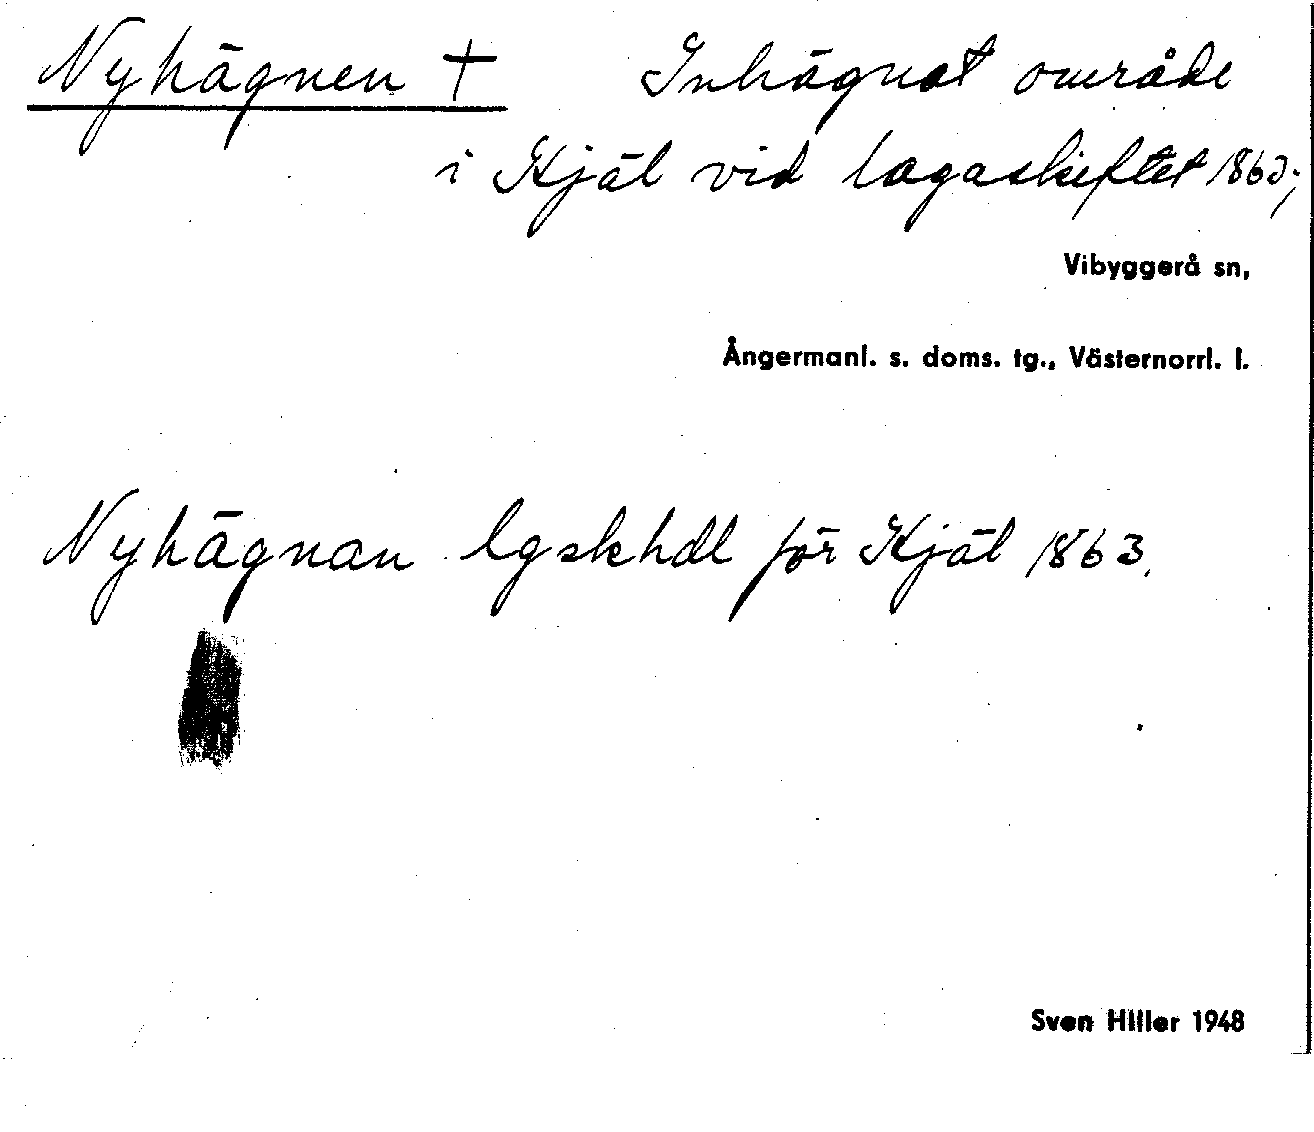 Nyhägnen + Inhägnat område
i Kjäl vid lagaskiftet 1863;
Vibyggerå sn,
Ångermanl. s. doms. tg., Västernorrl. l.
Nyhägnan lgskhdl för Kjäl 1863.
Sven Hiller 1948